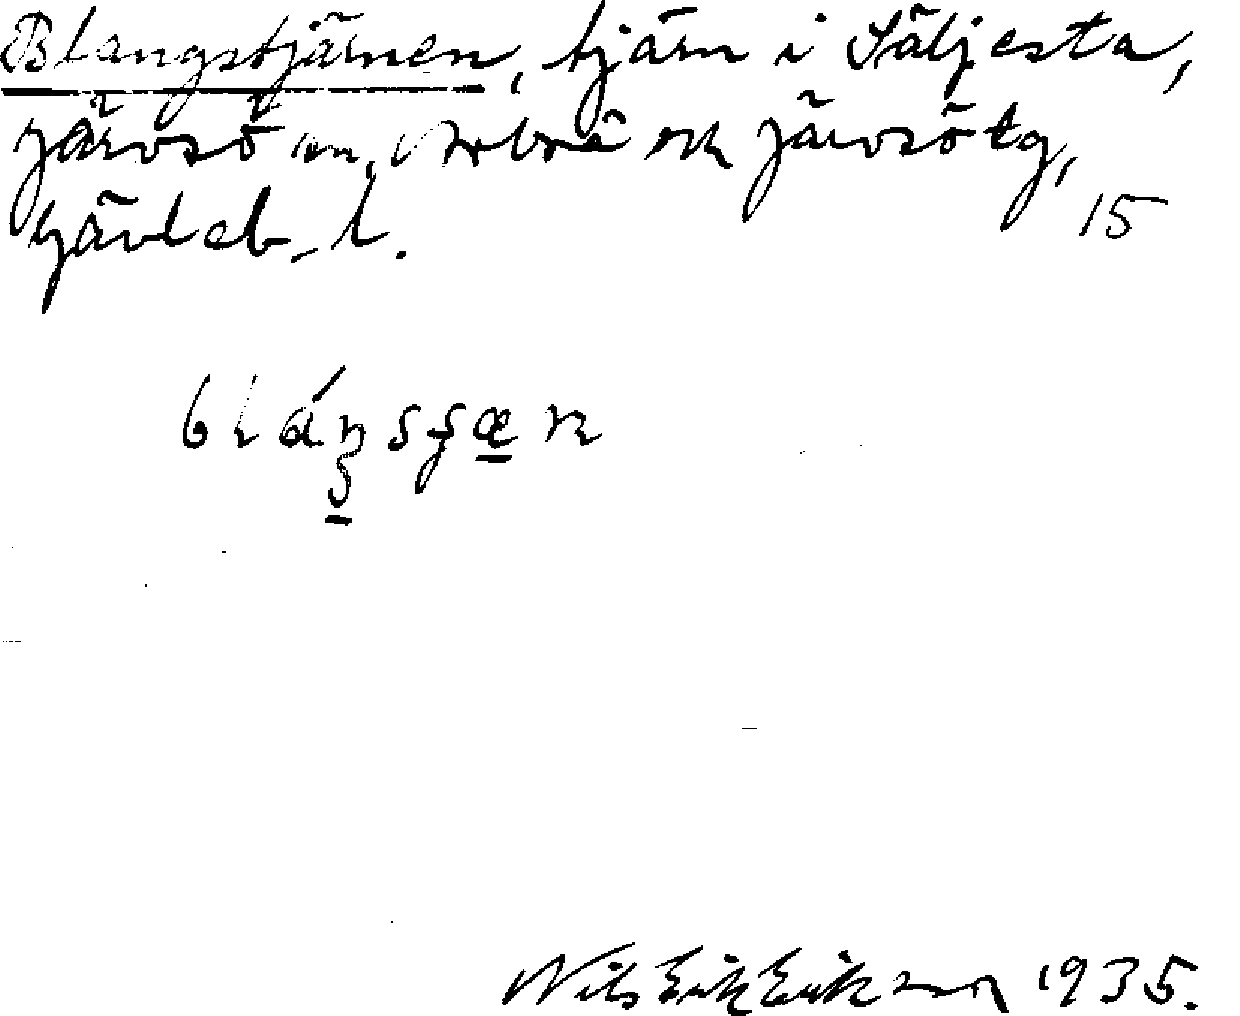 Blangstjärnen, tjärn i Säljesta,
Järvsö sn, Arbrå ock Järvsö tg,
Gävleb. l. 15
Nils Erik Eriksson 1935.